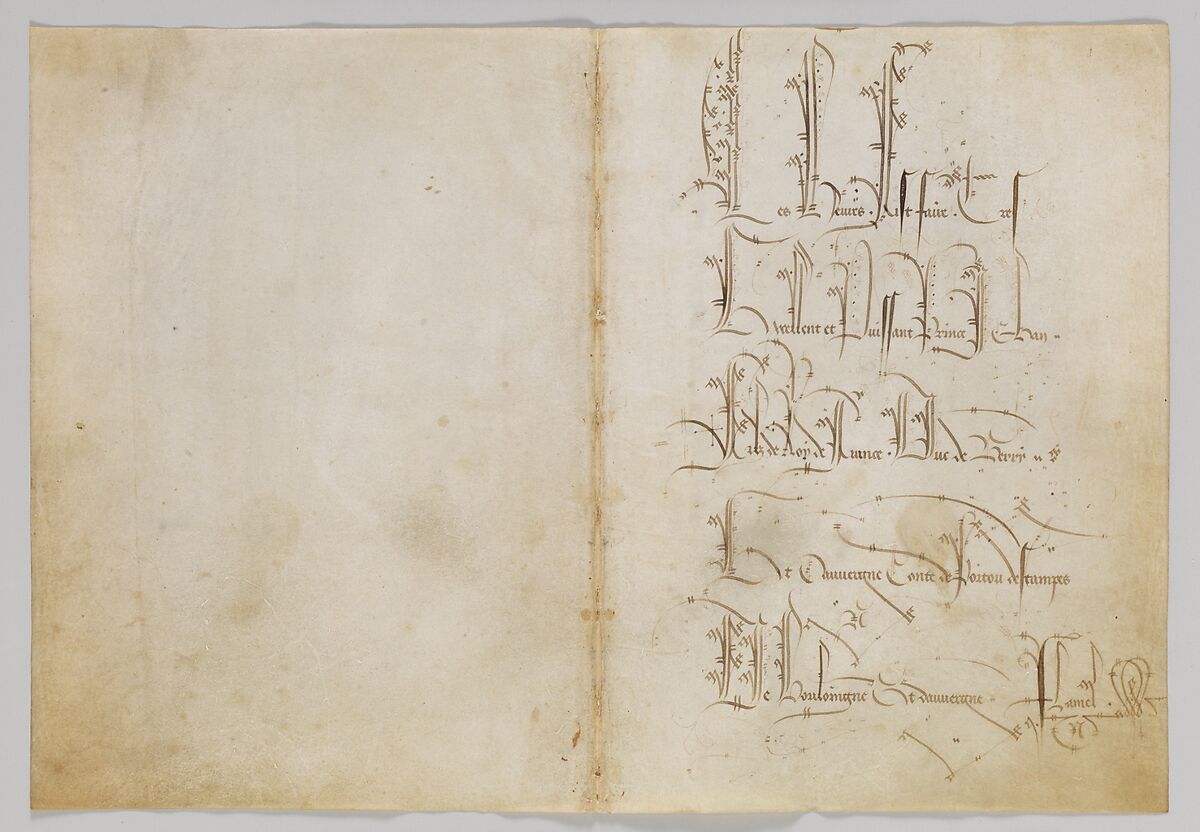 Ces Heures . Fist faire . Tres
Excellent et Puissant Prince Jehan
Filz de Roy de France . Duc de Berry
Et Dauvergne Conte de Poitou destampes
De Bouloingne Et dauvergne Flamel